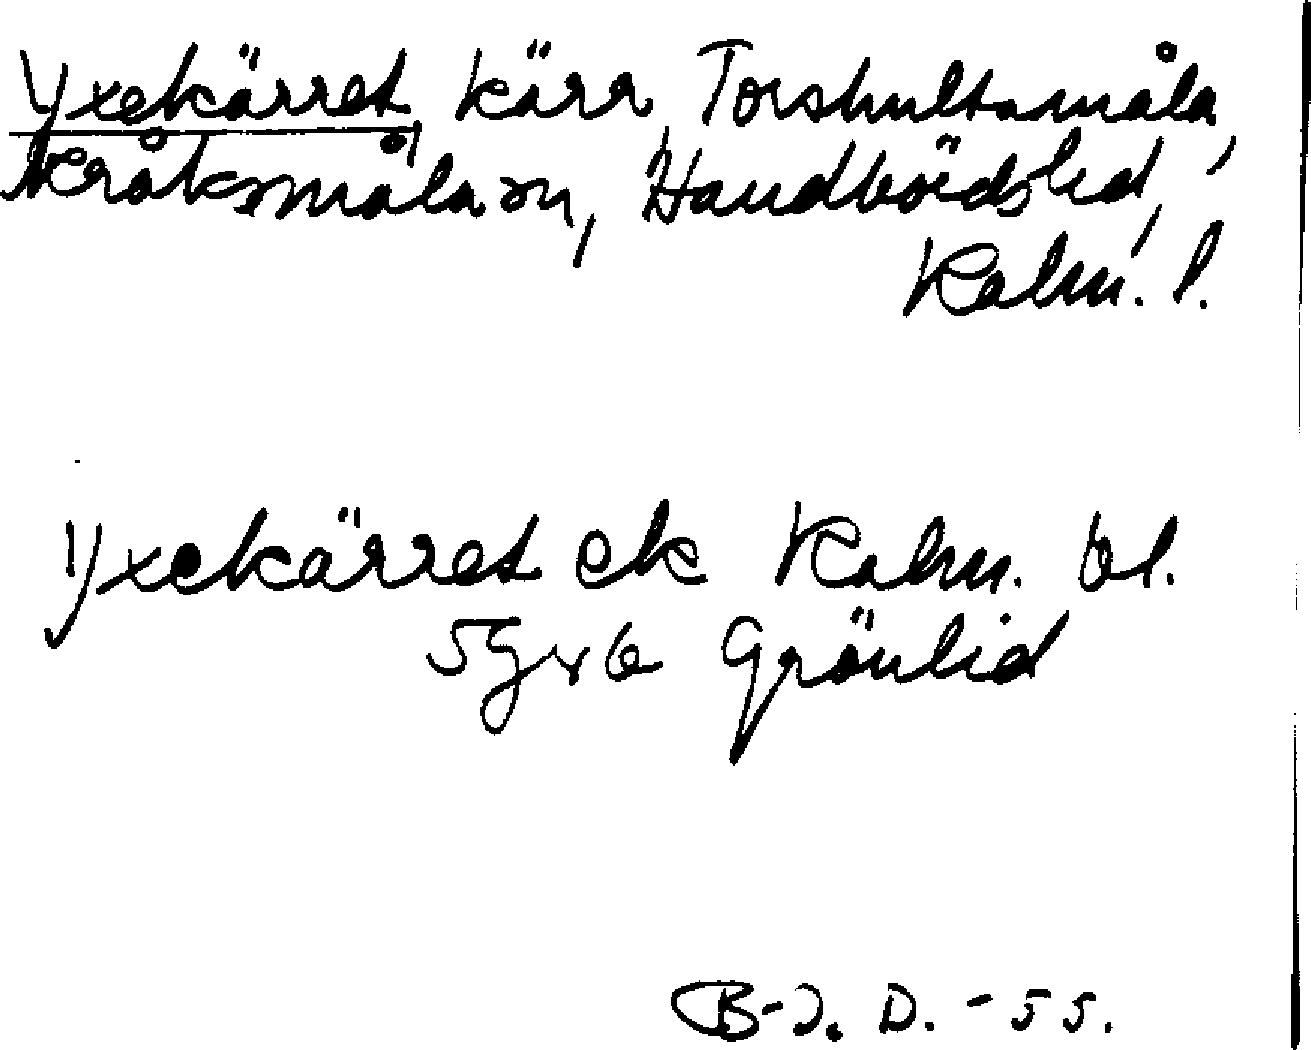 Yxekärret, kärr, Torshultamåla,
Kråksmåla sn, Handbörds hd,
Kalm. l.
Yxekärret ek Kalm. bl.
5G x 6 Grönlid
B-J. D. -55.